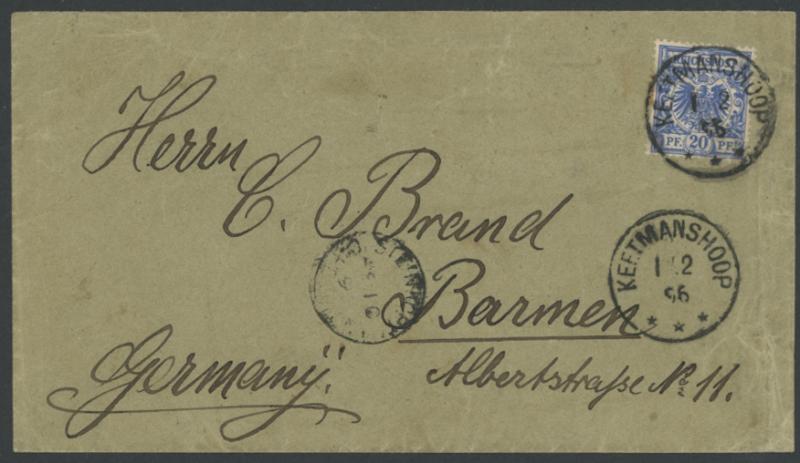 Herrn
C. Brand
Barmen
Albertstraße No 11.
Germany.
PF. 20 PF.
KEETMANSHOOP
1 2
KEETMANSHOOP
1 2
STEINKOPF